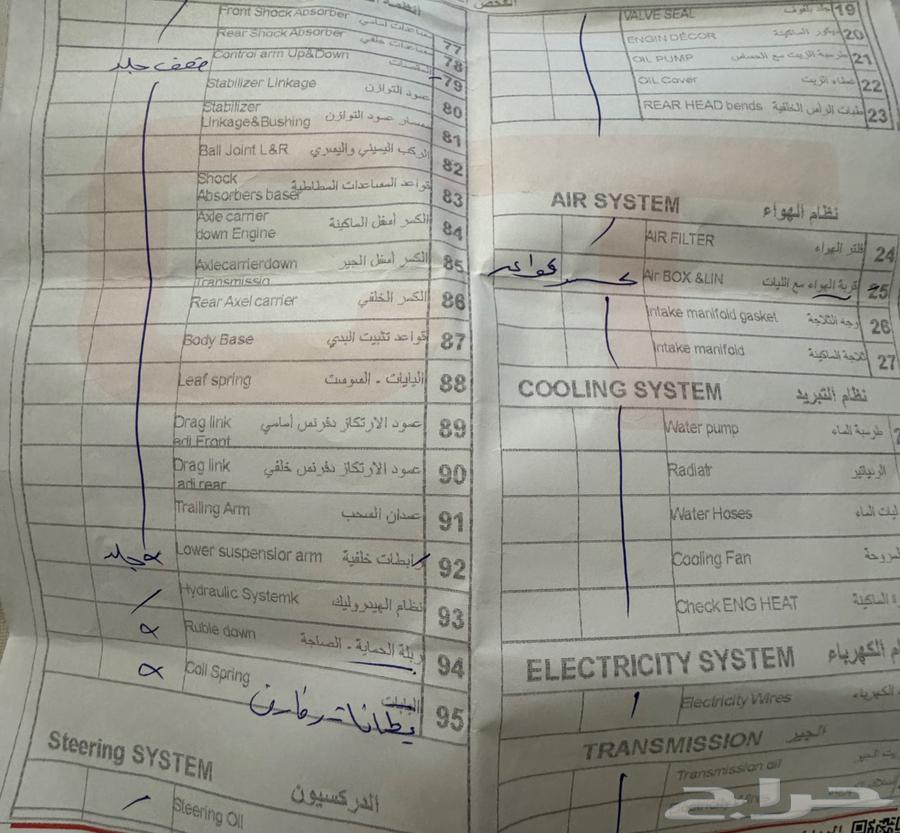 Front Shock Absorber مساعدات أساسي 77
Rear Shock Absorber مساعدات خلفي 78
Control arm Up&Down المقصات 79
ضعف جلد
Stabilizer Linkage عمود التوازن 80
Stabilizer
Linkage&Bushing مسمار عمود التوازن 81
Ball Joint L&R الركب اليميني واليسري 82
Shock
Absorbers baser قواعد المساعدات المطاطية 83
Axle carrier
down Engine الكسر أسفل الماكينة 84
Axlecarrierdown
Transmissio الكسر أسفل الجير 85
Rear Axel carrier الكسر الخلفي 86
Body Base قواعد تثبيت البدي 87
Leaf spring اليايات - السوست 88
Drag link
adj Front عمود الارتكاز دفرنس أساسي 89
Drag link
adj rear عمود الارتكاز دفرنس خلفي 90
Trailing Arm عمدان السحب 91
Lower suspensior arm رابطات خلفية 92
جلد
Hydraulic Systemk نظام الهيدروليك 93
Ruble down ربلة الحماية - الصاجة 94
Coil Spring اليايات 95
Steering SYSTEM الدركسيون
Steering Oil
VALVE SEAL 19
ENGIN DÉCOR ديكور الماكينة 20
OIL PUMP طرمبة الزيت مع الحساس 21
OIL Cover غطاء الزيت 22
REAR HEAD bends طبات الرأس الخلفية 23
AIR SYSTEM نظام الهواء
AIR FILTER فلتر الهواء 24
Air BOX &LIN قربة الهواء مع الليات 25
كسر قواعد
Intake manifold gasket وجه الثلاجة 26
Intake manifold ثلاجة الماكينة 27
COOLING SYSTEM نظام التبريد
Water pump طرمبة الماء
Radiatr الرديتر
Water Hoses ليات الماء
Cooling Fan المروحة
Check ENG HEAT الماكينة
ELECTRICITY SYSTEM الكهرباء
Electricity Wires الكهرباء
TRANSMISSION الجير
Transmission oil
حراج